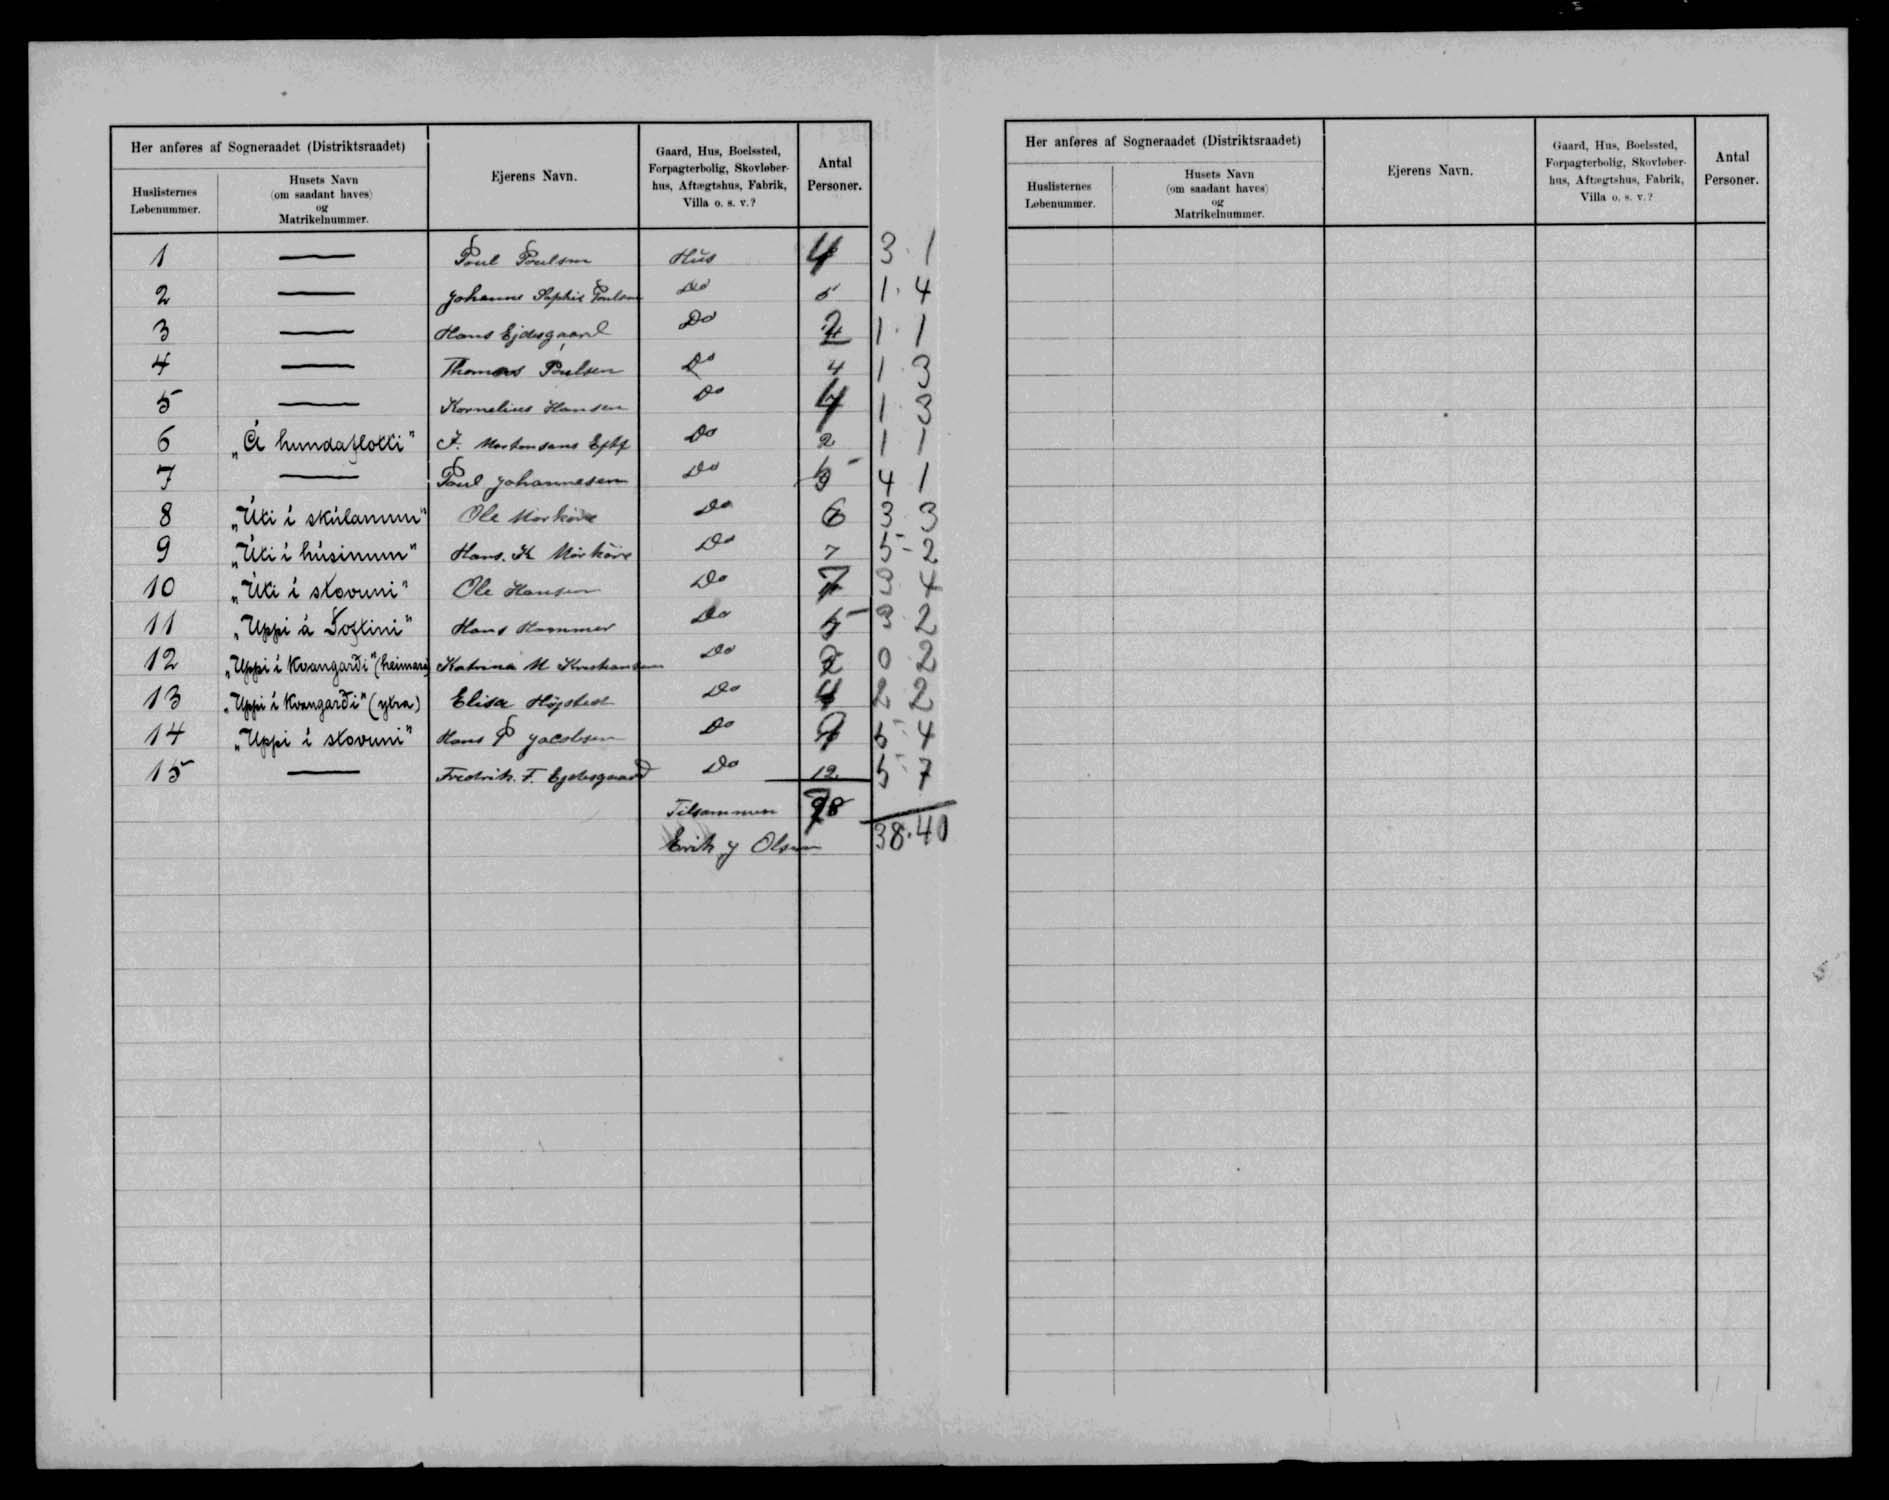 Her anføres af Sogneraadet (Distriktsraadet)
Huslisternes Løbenummer.
Husets Navn (om saadant haves) og Matrikelnummer.
Ejerens Navn.
Gaard, Hus, Boelssted, Forpagterbolig, Skovløberhus, Aftægtshus, Fabrik, Villa o. s. v.?
Antal Personer.
1 — Poul Poulsen Hus 4 3 1
2 — Johanne Sophie Poulsen Do 5 1 · 4
3 — Hans Ejdesgaard Do 2 1 · 1
4 — Thomas Poulsen Do 4 1 3
5 — Kornelius Hansen Do 4 1 3
6 „Á hundafløtti" J. Mortensens Eftf Do 2 1 1
7 — Poul Johannesen Do 5 4 1
8 „Úti í skúlanum" Ole Mørkøre Do 6 3 3
9 „Úti í húsinum" Hans. K Mörköre Do 7 5 - 2
10 „Úti í stovuni" Ole Hansen Do 7 3 4
11 „Uppi á Toftini" Hans Hammer Do 5 3 2
12 „Uppi í Kvangarði" (heimara) Katrina M Kristiansen Do 2 0 2
13 „Uppi í Kvangarði" (ytra) Elisa Højsted Do 4 2 2
14 „Uppi í stovuni" Hans P Jacobsen Do 9 5 4
15 — Fredrik. F. Ejdesgaard Do 12 5 7
Tilsammen 78
38.40
Erik J Olsen
Her anføres af Sogneraadet (Distriktsraadet)
Huslisternes Løbenummer.
Husets Navn (om saadant haves) og Matrikelnummer.
Ejerens Navn.
Gaard, Hus, Boelssted, Forpagterbolig, Skovløberhus, Aftægtshus, Fabrik, Villa o. s. v.?
Antal Personer.